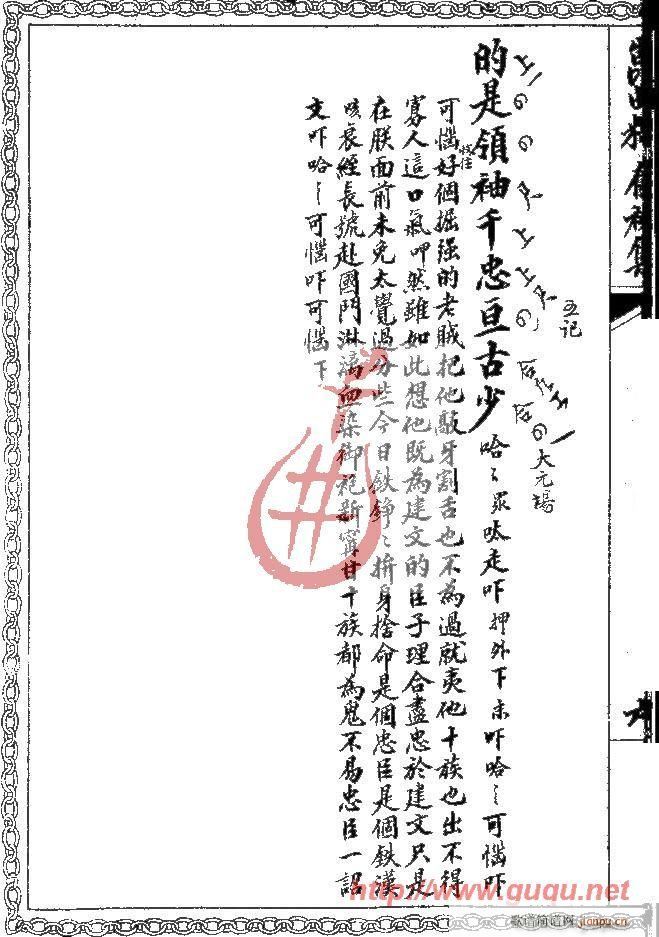 的是領袖千忠亘古少
哈〻眾呔走吓押外下末吓哈〻可惱吓
可惱好個掘强的老賊把他敲牙割舌也不為過就夷他十族也出不得
寡人這口氣呷然雖如此想他既為建文的臣子理合盡忠於建文只是
在朕面前未免太覺過分些今日鉄錚〻拚身捨命是個忠臣是個鉄漢
衰絰長號赴國門淋漓血染御袍新寧甘十族都為鬼不易忠臣一詔
文吓哈〻可惱吓可惱下
大元場
http://www.guqu.net
歌谱简谱网
jianpu.cn